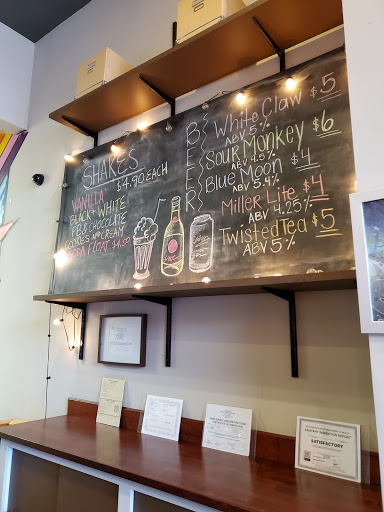 SHAKES
$4.90 EACH
VANILLA
BLACK + WHITE
PB & CHOCOLATE
COOKIES N CREAM
SODA FLOAT $4.50
BEER
White Claw $5
ABV 5%
Sour Monkey $6
ABV 9.5%
Blue Moon $4
ABV 5.4%
Miller Lite $4
ABV 4.25%
Twisted Tea $5
ABV 5%
SATISFACTORY